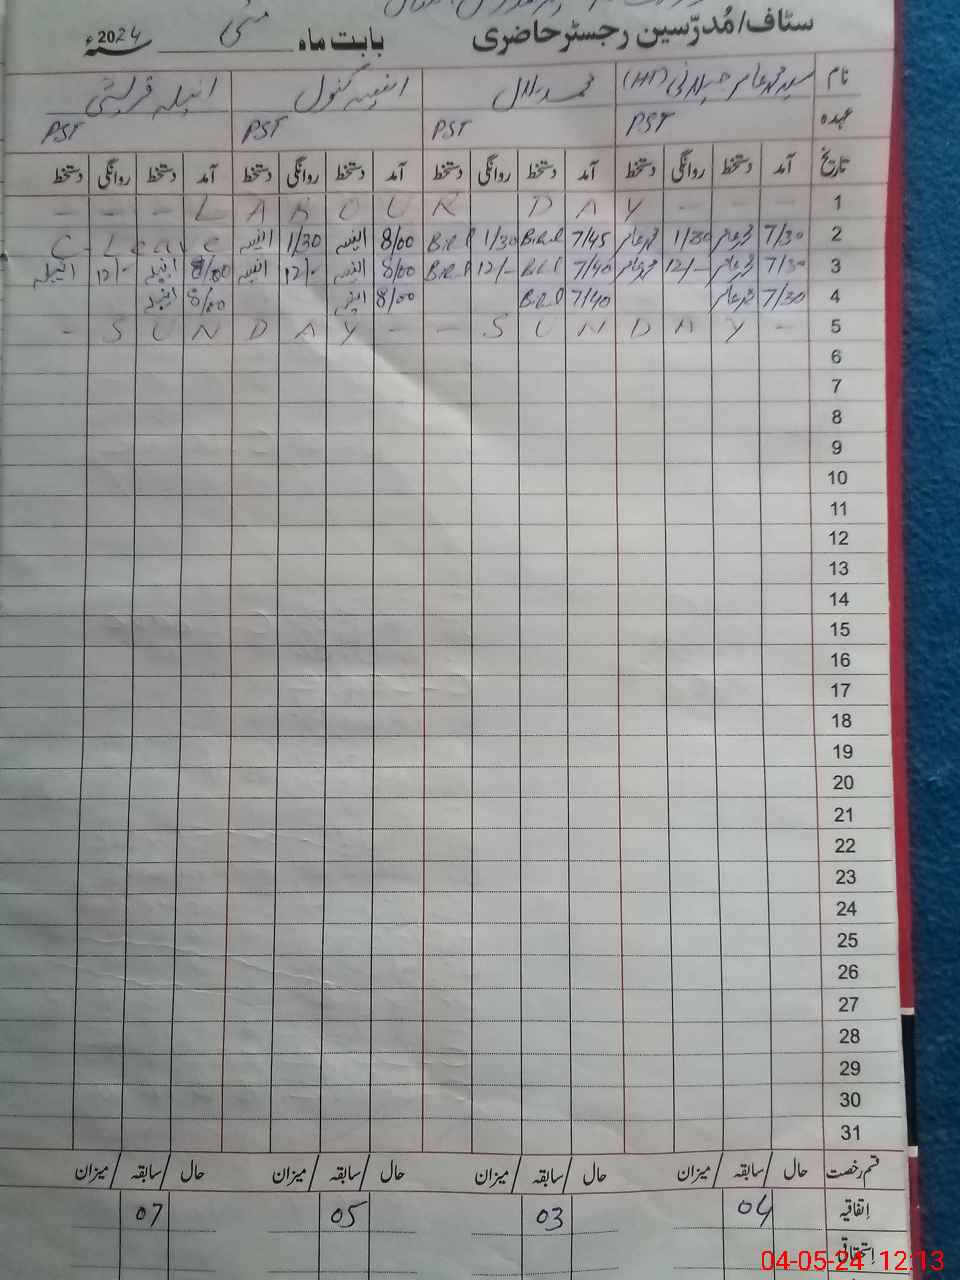 سٹاف/مُدرّسین رجسٹر حاضری بابت ماہ مئی سنہ 2024ء
نام سید محمد عامر جیلانی (HT) محمد بلال انیسہ کنول انیلہ قریشی
عہدہ PST PST PST PST
تاریخ آمد دستخط روانگی دستخط آمد دستخط روانگی دستخط آمد دستخط روانگی دستخط آمد دستخط روانگی دستخط
1 - - - LABOUR DAY - - -
2 7/30 محمد عامر 1/30 محمد عامر 7/45 1/30 8/00 انیسہ 1/30 انیسہ C-Leave
3 7/30 محمد عامر 12/- محمد عامر 7/40 12/- 8/00 انیسہ 12/- انیسہ 8/00 انیلہ 12/- انیلہ
4 7/30 محمد عامر 7/40 8/00 انیسہ 8/00 انیلہ
5 - SUNDAY - - SUNDAY -
6
7
8
9
10
11
12
13
14
15
16
17
18
19
20
21
22
23
24
25
26
27
28
29
30
31
قسم رخصت حال / سابقہ / میزان حال / سابقہ / میزان حال / سابقہ / میزان حال / سابقہ / میزان
اِتفاقیہ 04 03 05 07
اِستحقاقی
04-05-24 12:13